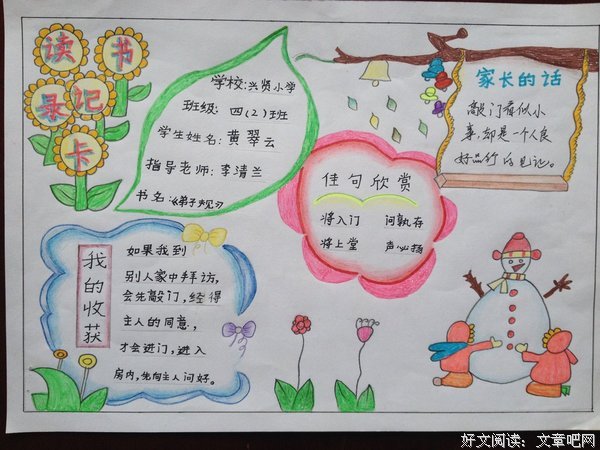 读书
录记
卡
学校:兴贤小学
班级:四(2)班
学生姓名:黄翠云
指导老师:李清兰
书名:《弟子规》
家长的话
敲门看似小
事,却是一个人良
好品
佳句欣赏
将入门 问孰存
将上堂 声必扬
我的收获
如果我到
别人家中拜访,
会先敲门,经得
主人的同意,
才会进门,进入
房内,先向主人问好。
好文阅读:文章吧网